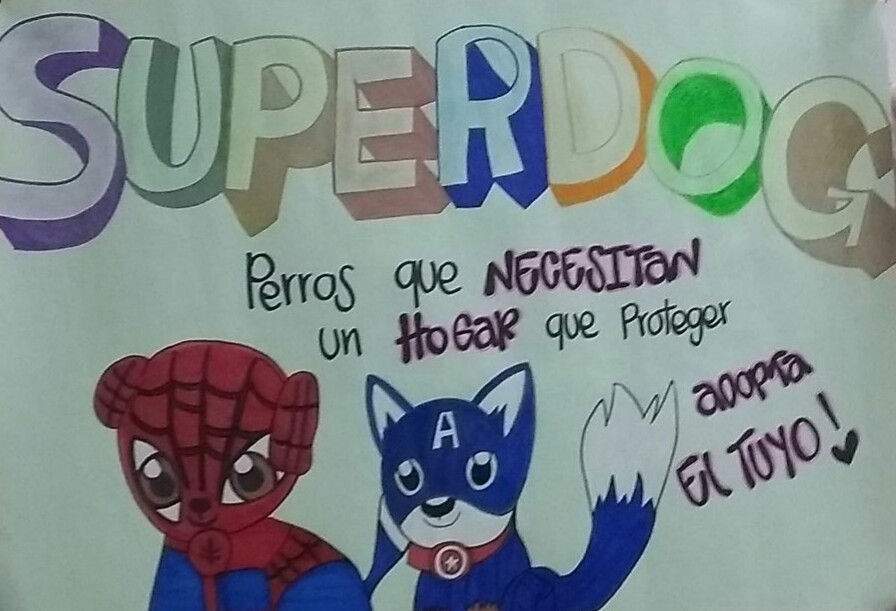 SUPERDOG
Perros que NECESITAN
un HOGAR que Proteger
adopta
El TUYO!
A